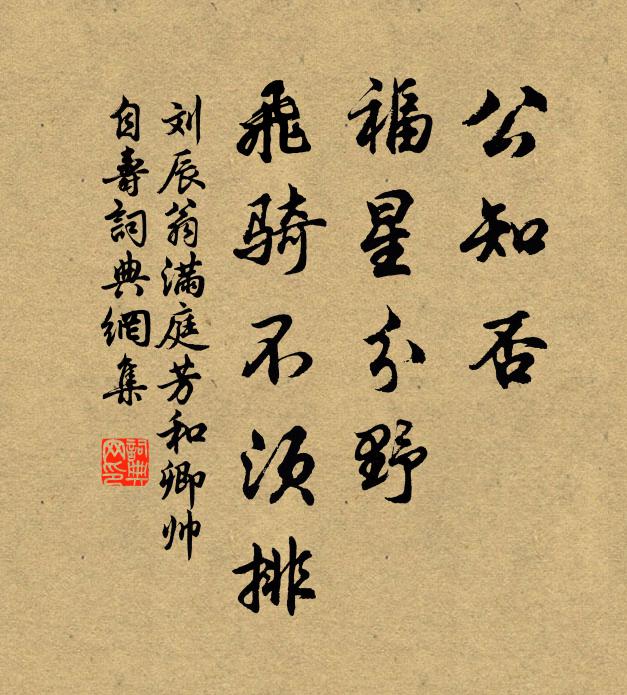 公知否
福星分野
飛騎不須排
刘辰翁满庭芳和卿帅
自壽詞典網集
詞典网印